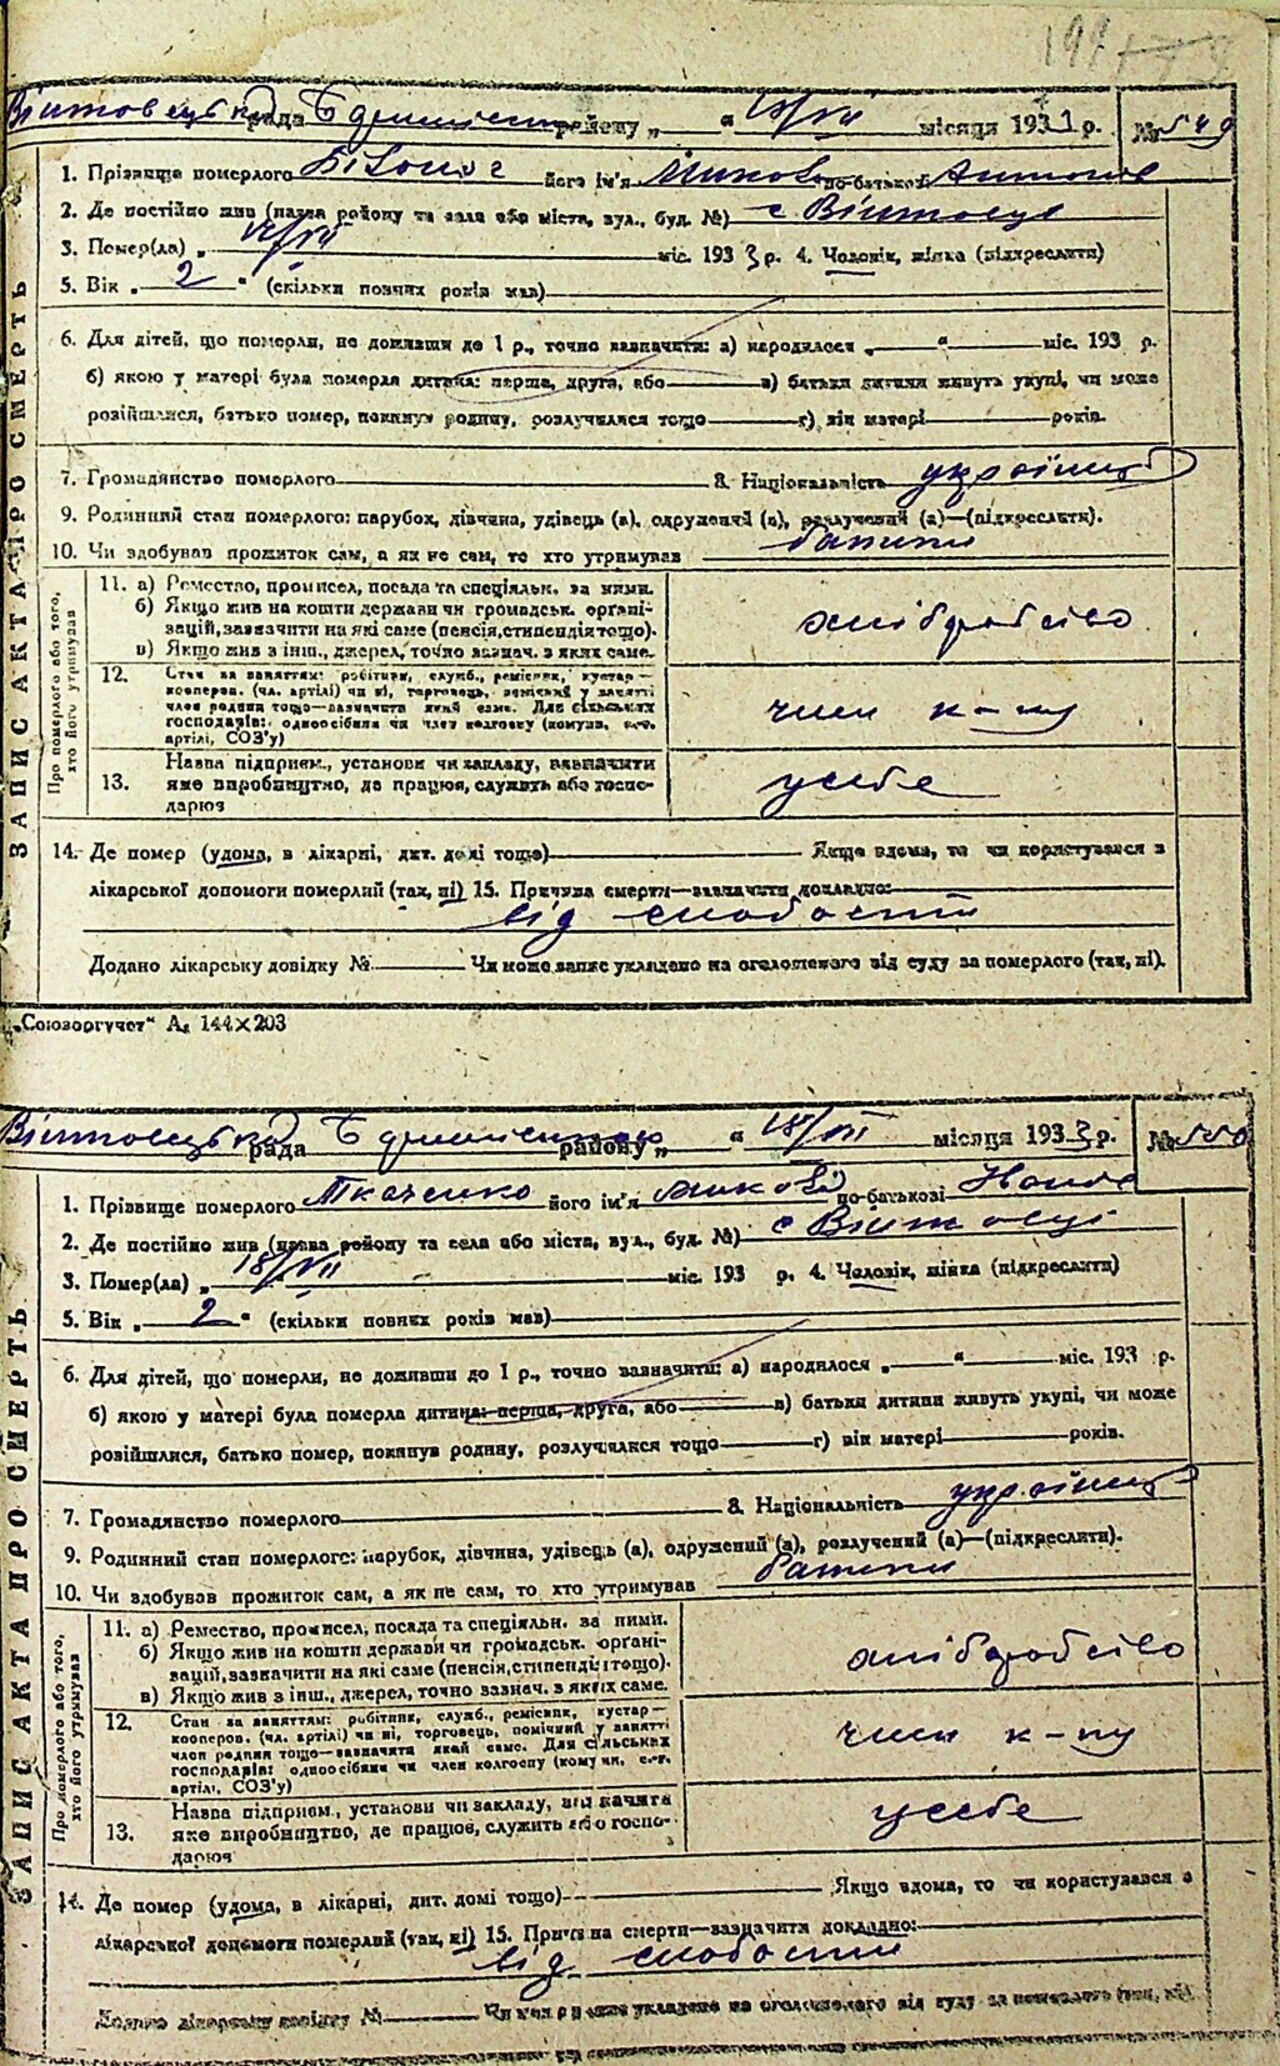 рада району „ “ 18/VII місяця 1933 р. № 549
1. Прізвище померлого його ім'я Микола по-батькові Антонов
2. Де постійно жив (назва району та села або міста, вул., буд. №) с Війтовці
3. Помер(ла) „ /VII міс. 1933 р. 4. Чоловік, жінка (підкреслити)
5. Вік „ 2 “ (скільки повних років мав)
6. Для дітей, що померли, не доживши до 1 р., точно зазначити: а) народилося „ “ міс. 193 р.
б) якою у матері була померла дитина: перша, друга, або в) батьки дитини живуть укупі, чи може
розійшлися, батько помер, покинув родину, розлучилися тощо г) вік матері років.
7. Громадянство померлого 8. Національність українець
9. Родинний стан померлого: парубок, дівчина, удівець (а), одружений (а), розлучений (а)—(підкреслити).
10. Чи здобував прожиток сам, а як не сам, то хто утримував батьки
ЗАПИС АКТА ПРО СМЕРТЬ
Про померлого або того, хто його утримував
11. а) Ремество, промисел, посада та спеціяльн. за ними.
б) Якщо жив на кошти держави чи громадськ. органі-
зацій, зазначити на які саме (пенсія, стипендія тощо).
в) Якщо жив з інш., джерел, точно зазнач. з яких саме.
хліборобство
12. Стан за заняттям: робітник, служб., ремісник, кустар—
кооперов. (чл. артілі) чи ні, торговець, помічний у занятті
член родини тощо—зазначити який саме. Для сільських
господарів: одноосібник чи член колгоспу (комуни, с.-г.
артілі, СОЗ'у)
член к-пу
13. Назва підприєм., установи чи закладу, зазначити
яке виробництво, де працює, служить або госпо-
дарює
у себе
14. Де помер (удома, в лікарні, дит. домі тощо) Якщо вдома, то чи користувався з
лікарської допомоги померлий (так, ні) 15. Причина смерти—зазначити докладно:
від слабости
Додано лікарську довідку № Чи може запис укладено на оголошеного від суду за померлого (так, ні).
„Союзоргучет“ А₄ 144×203
рада району „ “ 18/VII місяця 1933 р. № 550
1. Прізвище померлого Ткаченко його ім'я Микола по-батькові
2. Де постійно жив (назва району та села або міста, вул., буд. №) с Війтовці
3. Помер(ла) „ 18/VII міс. 193 р. 4. Чоловік, жінка (підкреслити)
5. Вік „ 2 “ (скільки повних років мав)
6. Для дітей, що померли, не доживши до 1 р., точно зазначити: а) народилося „ “ міс. 193 р.
б) якою у матері була померла дитина: перша, друга, або в) батьки дитини живуть укупі, чи може
розійшлися, батько помер, покинув родину, розлучилися тощо г) вік матері років.
7. Громадянство померлого 8. Національність українець
9. Родинний стан померлого: парубок, дівчина, удівець (а), одружений (а), розлучений (а)—(підкреслити).
10. Чи здобував прожиток сам, а як не сам, то хто утримував батьки
ЗАПИС АКТА ПРО СМЕРТЬ
Про померлого або того, хто його утримував
11. а) Ремество, промисел, посада та спеціяльн. за ними.
б) Якщо жив на кошти держави чи громадськ. органі-
зацій, зазначити на які саме (пенсія, стипендія тощо).
в) Якщо жив з інш., джерел, точно зазнач. з яких саме.
хліборобство
12. Стан за заняттям: робітник, служб., ремісник, кустар—
кооперов. (чл. артілі) чи ні, торговець, помічний у занятті
член родини тощо—зазначити який саме. Для сільських
господарів: одноосібник чи член колгоспу (комуни, с.-г.
артілі, СОЗ'у)
член к-пу
13. Назва підприєм., установи чи закладу, зазначити
яке виробництво, де працює, служить або госпо-
дарює
у себе
14. Де помер (удома, в лікарні, дит. домі тощо) Якщо вдома, то чи користувався з
лікарської допомоги померлий (так, ні) 15. Причина смерти—зазначити докладно:
від слабости
Додано лікарську довідку № Чи може запис укладено на оголошеного від суду за померлого (так, ні).